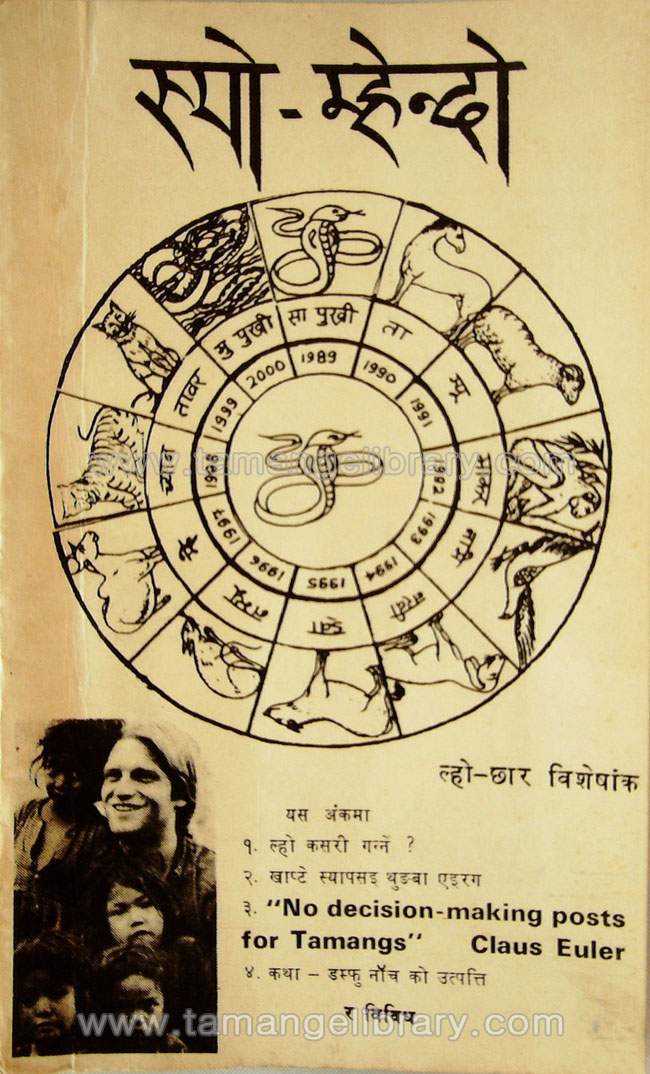 स्यो-म्हेन्दो
सा पुख्री
1989
ता
1990
1991
1992
1993
1994
1995
1996
1997
1998
तावर
1999
मु पुख्री
2000
ल्हो-छार विशेषांक
यस अंकमा
१. ल्हो कसरी गन्ने ?
२. खाप्टे स्यापसइ थुङबा एइरग
३. "No decision-making posts
for Tamangs" Claus Euler
४. कथा - डम्फु नाँच को उत्पत्ति
र विविध
www.tamangelibrary.com
www.tamangelibrary.com